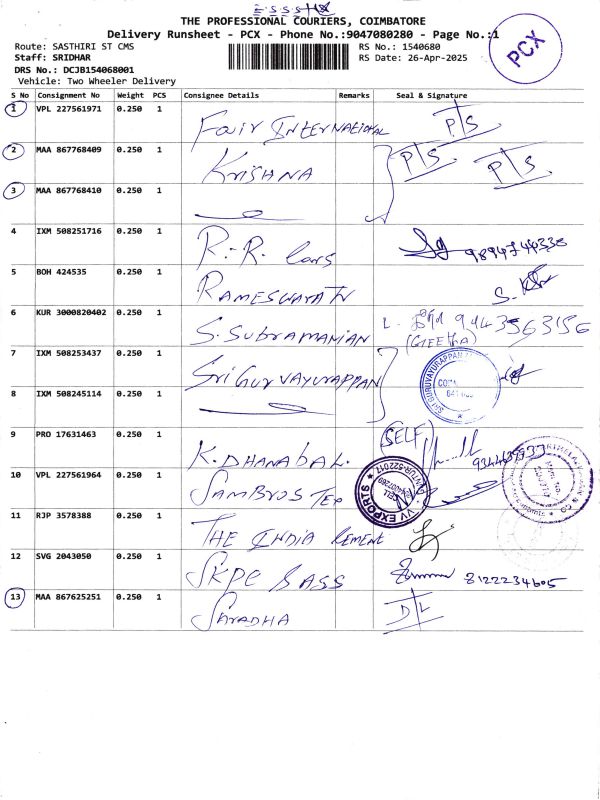 THE PROFESSIONAL COURIERS, COIMBATORE
Delivery Runsheet - PCX - Phone No.:9047080280 - Page No.:1
PCX
Route: SASTHIRI ST CMS
RS No.: 1540680
Staff: SRIDHAR
RS Date: 26-Apr-2025
DRS No.: DCJB154068001
Vehicle: Two Wheeler Delivery
S No Consignment No Weight PCS Consignee Details Remarks Seal & Signature
1 VPL 227561971 0.250 1 Fair International P/S
2 MAA 867768409 0.250 1 Krishna P/S P/S
3 MAA 867768410 0.250 1
4 IXM 508251716 0.250 1 R.R. Cars 9894744338
5 BOH 424535 0.250 1 Rameswara TN
6 KUR 3000820402 0.250 1 S. Subramanian 9443563156
(GEETHA)
7 IXM 508253437 0.250 1 Sri Guruvayurappan
8 IXM 508245114 0.250 1
9 PRO 17631463 0.250 1 K. Dhanabal. (SELF)
10 VPL 227561964 0.250 1 Sambros Tex
VV EXPORTS
11 RJP 3578388 0.250 1 The India Cement
12 SVG 2043050 0.250 1 SKPC Sass 8122234605
13 MAA 867625251 0.250 1 Saradha D/L